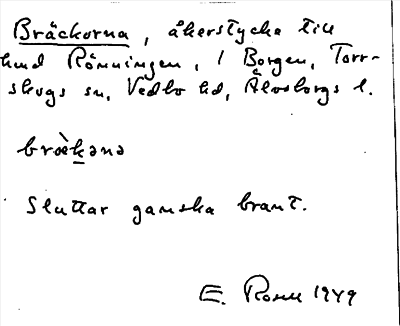 Bräckorna, åkerstycke till
hmd Römningen, 1 Borgen, Torr-
skogs sn, Vedbo hd, Älvsborgs l.
bræ̀kənə
Sluttar ganska brant.
E. Rosell 1949